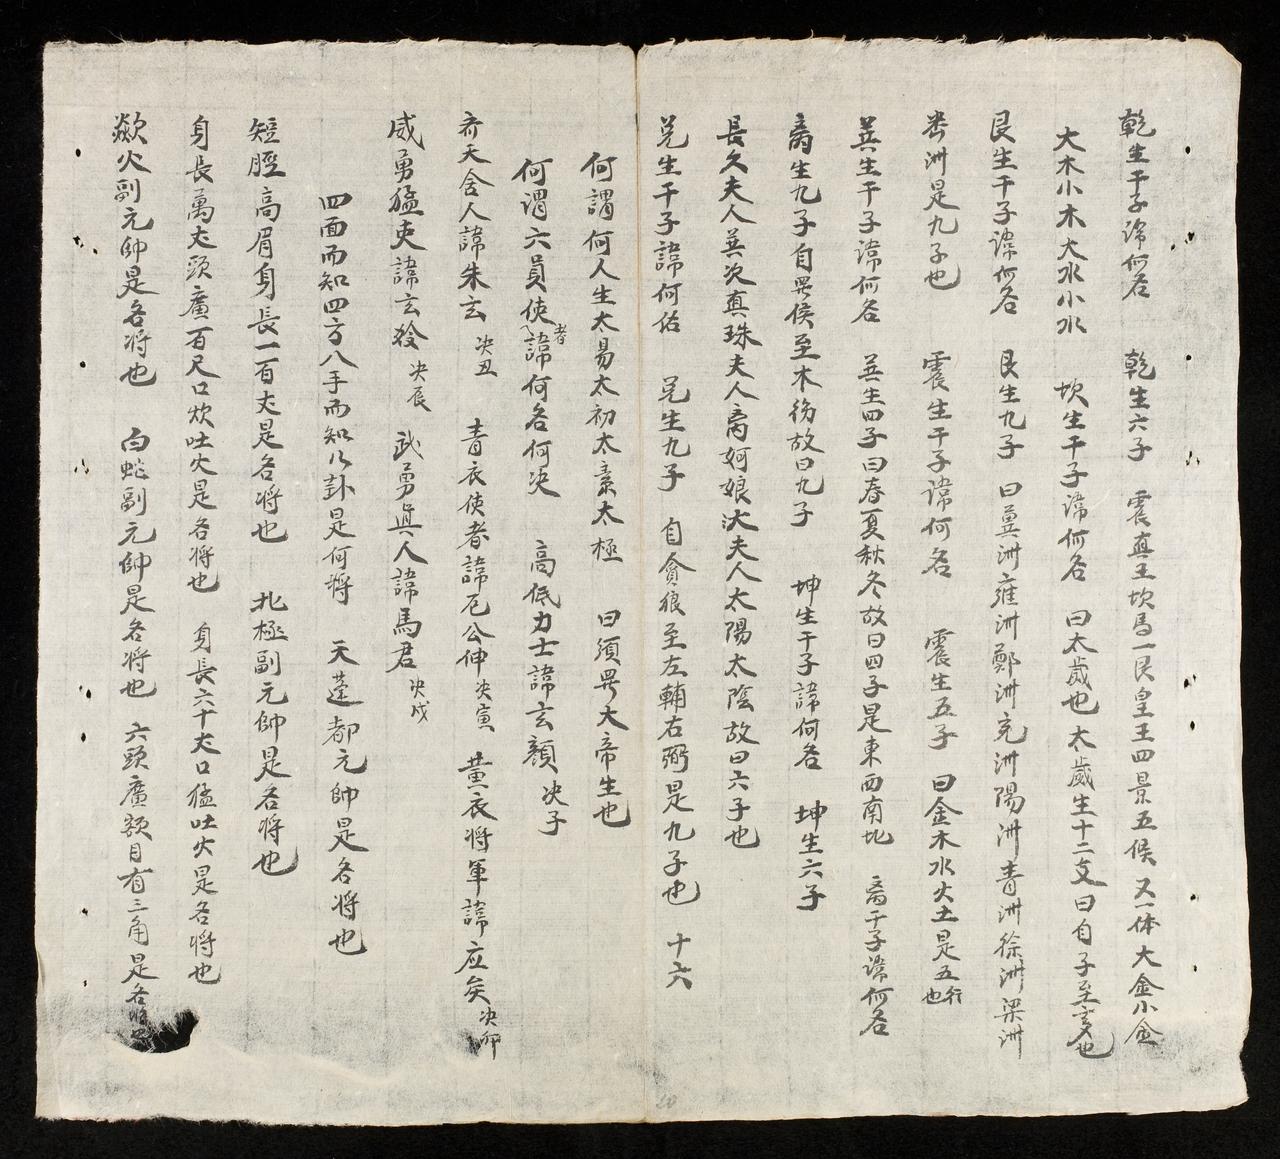 乾生干子諱何名　乾生六子　震真王坎馬一艮皇王四景五侯　又一体大金小金
大木小木大水小水　坎生干子諱何名　曰太歲也太歲生十二支曰自子至亥也
艮生干子諱何名　艮生九子　曰蓂洲雍洲鄭洲充洲陽洲青洲徐洲梁洲
洲是九子也　震生干子諱何名　震生五子　曰金木水火土是五行也
巽生干子諱何名　巽生四子曰春夏秋冬故曰四子是東西南北　离干子諱何名
离生九子自畀侯至木徬故曰九子　坤生干子諱何名　坤生六子
長久夫人巽次真珠夫人离妸娘汏夫人太陽太陰故曰六子也
兑生干子諱何佲　兑生九子　自貪狼至左輔右弼是九子也　十六
何謂何人生太易太初太素太極　曰須畀大帝生也
何謂六員使者諱何名何决　高低力士諱玄顏　决子
奇天舍人諱朱玄　决丑　青衣使者諱厄公伸　决寅　黃衣将軍諱应矣　决卯
威勇猛吏諱玄殺　决辰　武勇眞人諱馬君　决戌
四面而知四方八手而知八卦是何将　天蓬都元帥是名将也
短脛高眉身長一百丈是名将也　北極副元帥是名将也
身長萬丈頭廣百尺口炊吐火是名将也　身長六十丈口猛吐火是名将也
歘火副元帥是名将也　白蛇副元帥是名将也　六頭廣额目有三角是名将也